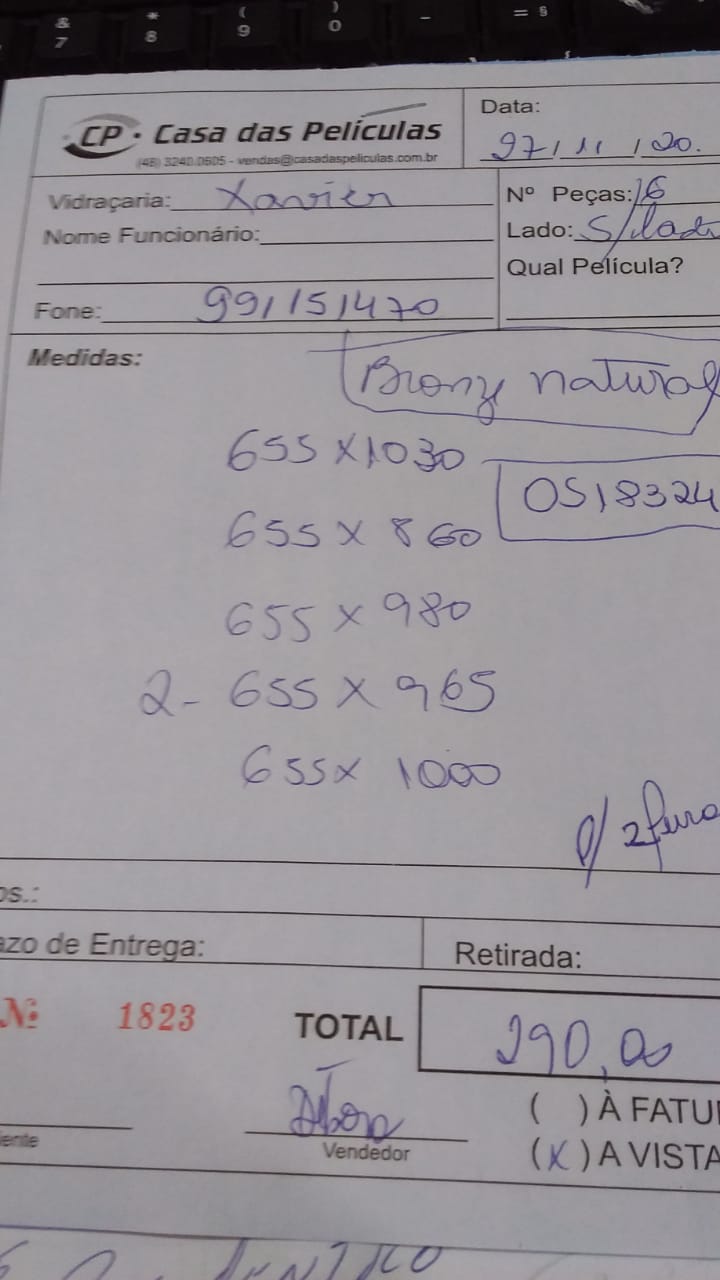 & * ( ) _ = §
7 8 9 0
CP · Casa das Películas
(48) 3240.0605 - vendas@casadaspeliculas.com.br
Data:
27/11/20.
Vidraçaria: Xavier
Nº Peças: 6
Nome Funcionário:
Lado: S/lado
Qual Película?
Fone: 99115 1470
Medidas:
Bronze natural
655 x 1030
OS 18324
655 x 860
655 x 980
2 - 655 x 965
655 x 1000
p/ 2 furo
os.:
azo de Entrega:
Retirada:
Nº 1823
TOTAL 290,00
iente
Vendedor
( ) À FATU
(X) A VISTA